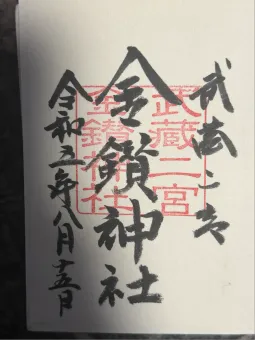 武蔵二宮
金鑚神社
令和五年八月十五日
武蔵二宮
金鑚神社